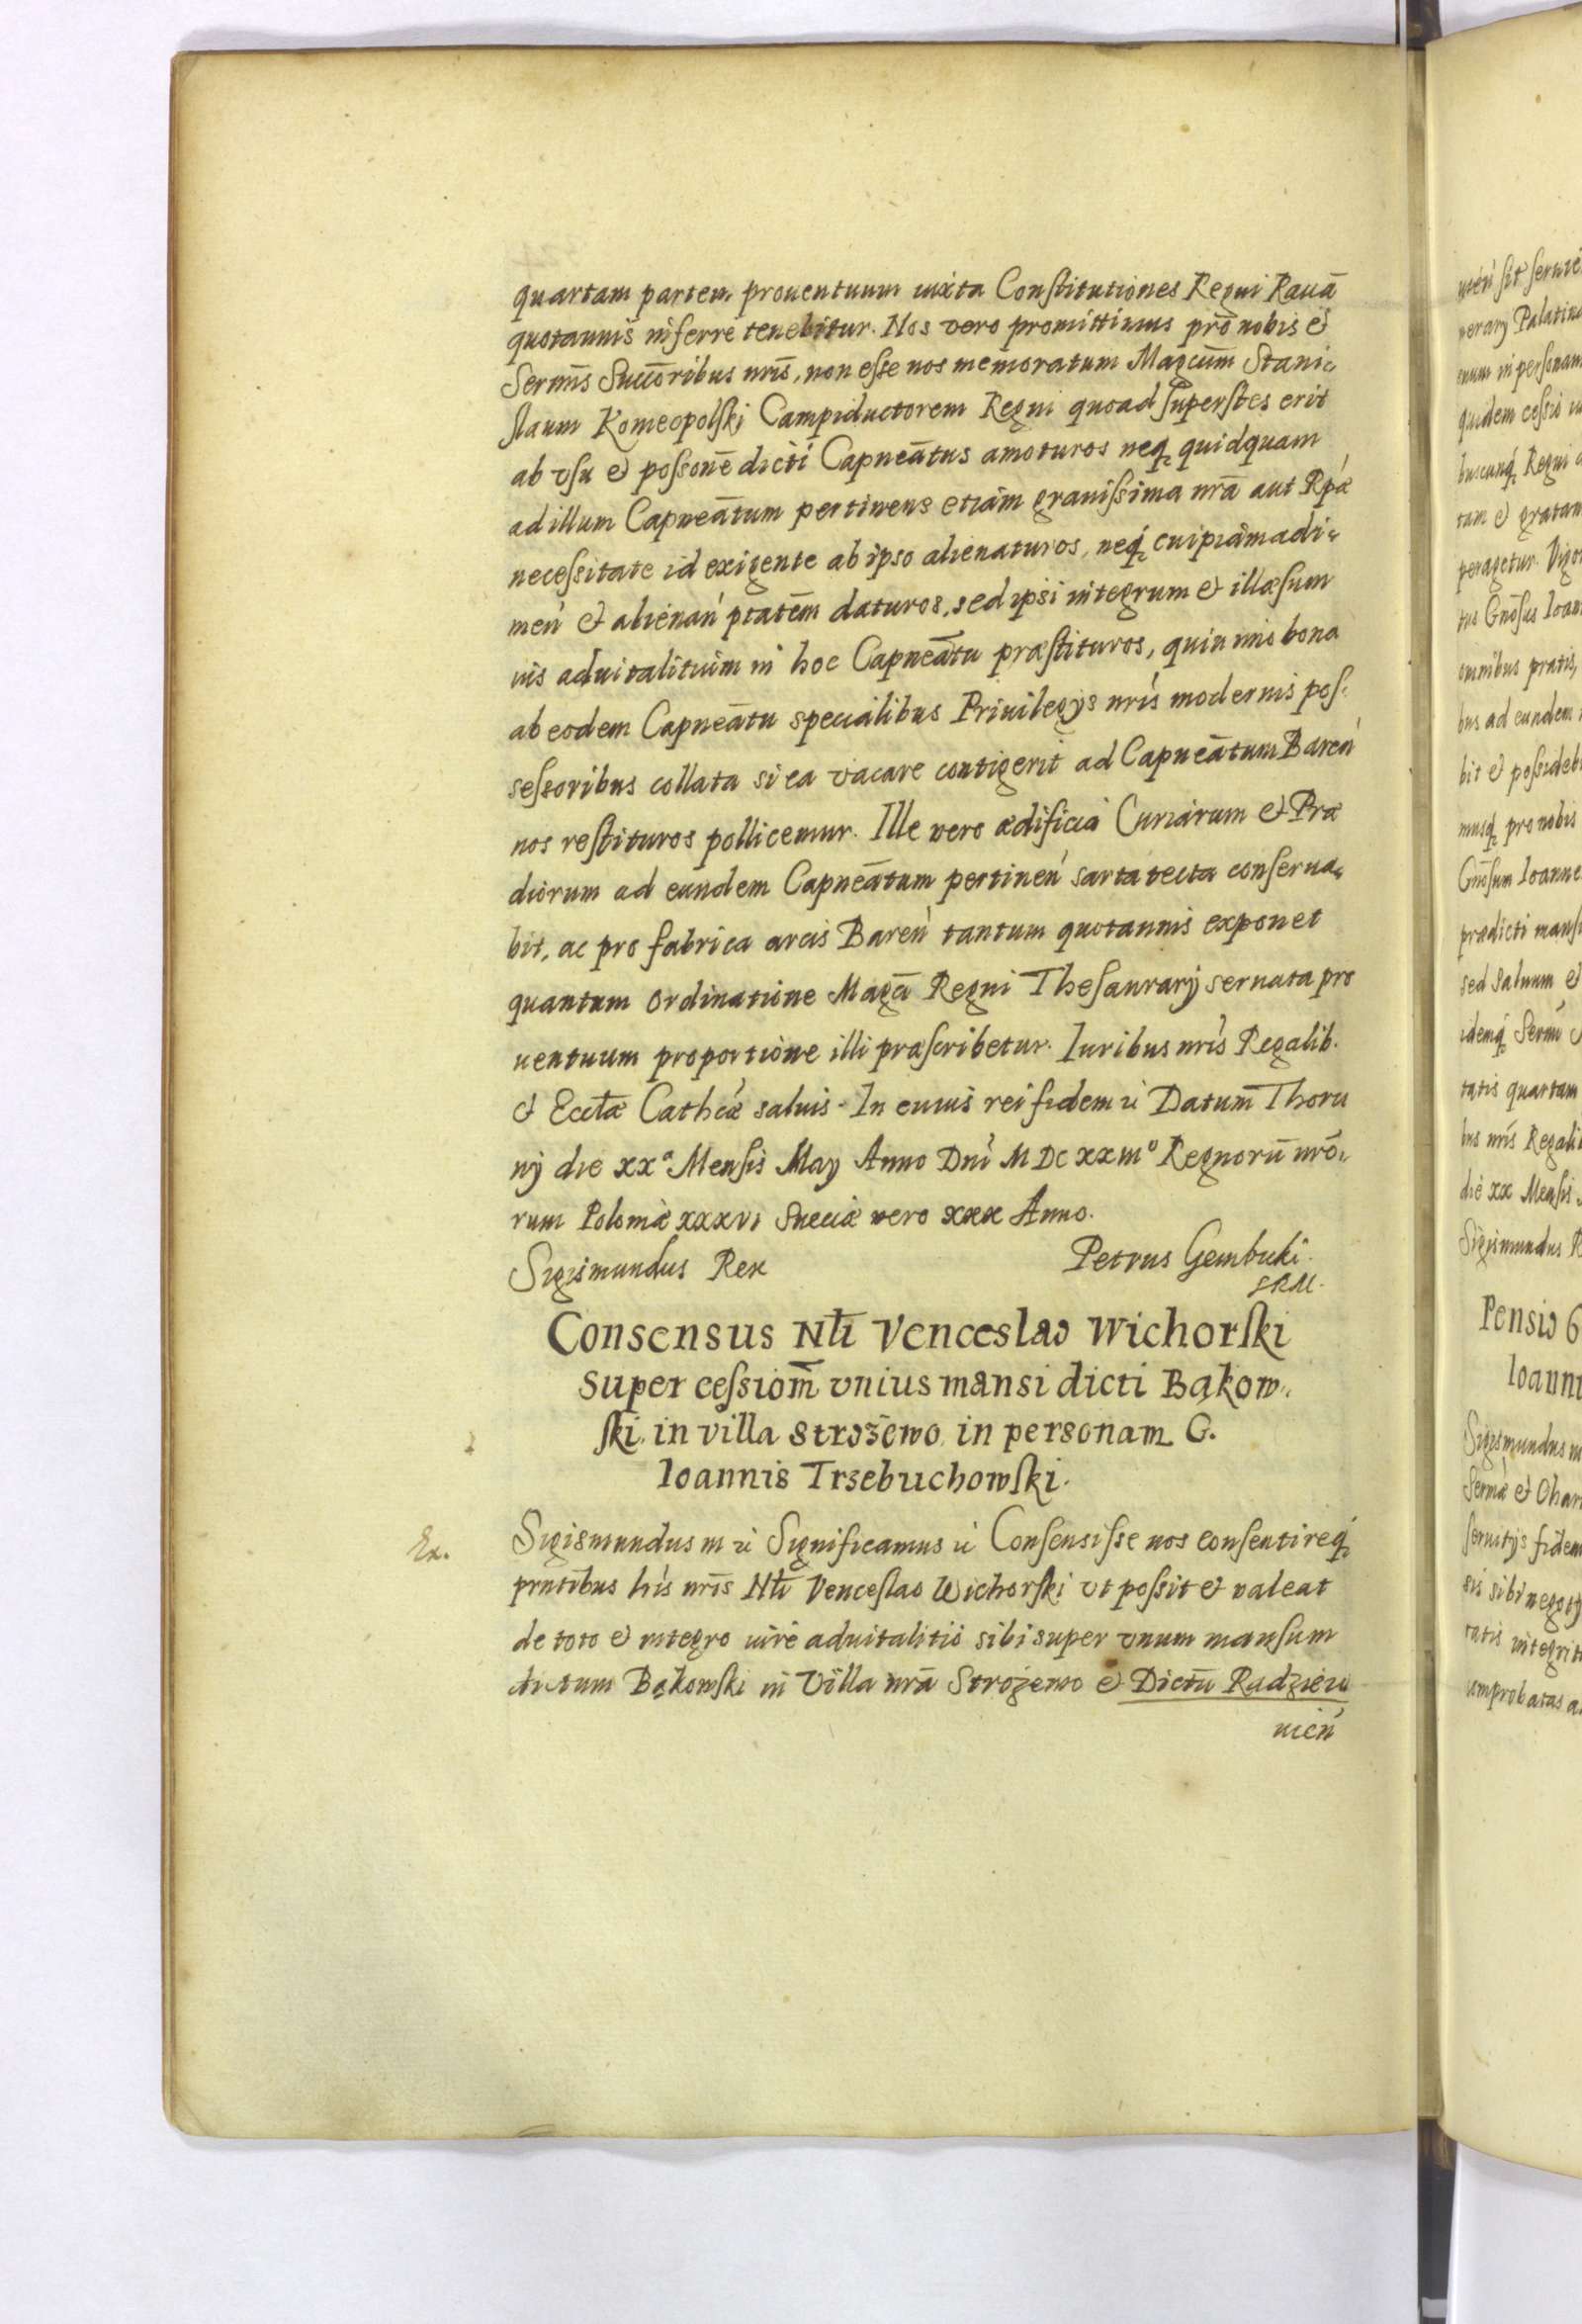 quartam partem prouentuum iuxta Constitutiones Regni Rauā
quotannis inferre tenebitur. Nos vero promittimus pro nobis et
Sermīs Succōribus nrīs, non esse nos memoratum Magcūm Stani-
slaum Koniecpolski Campiductorem Regni quoad superstes erit
ab vsu et possonē dicti Capneātus amoturos neq quidquam
ad illum Capneātum pertinens etiam grauissima nrā aut Rpæ
necessitate id exigente ab ipso alienaturos, neq cuipiam adi-
men et alienan ptatēm daturos, sed ipsi integrum et illæsum
ius aduitalitium in hoc Capneātu præstituros, quin imo bona
ab eodem Capneātu specialibus Priuilegys nrīs modernis pos-
sessoribus collata si ea vacare contigerit ad Capneātum Baren
nos restituros pollicemur. Ille vero ædificia Curiarum et Præ
diorum ad eundem Capneātum pertinen sarta tecta conserua-
bit, ac pro fabrica arcis Baren tantum quotannis exponet
quantum ordinatione Magcī Regni Thesaurarij seruata pro
uentuum proportione illi præscribetur. Iuribus nrīs Regalib.
et Ecclæ Cathcæ saluis. In cuius rei fidem ɾc Datum Thoru
nij die XXª Mensis May Anno Dnī MDCXXIIIº Regnorū nrō-
rum Poloniæ XXXVI Sueciæ vero XXX Anno.
Sigismundus Rex Petrus Gembicki
SRM.
Consensus Nlī Venceslao Wichorski
super cessionēm vnius mansi dicti Bąkow-
ski in villa Strożewo in personam G.
Ioannis Trzebuchowski.
Ex.
Sigismundus III ɾc Significamus ɾc Consensisse nos consentireq
pntibus his nrīs Nlī Venceslao Wichorski vt possit et valeat
de toto et integro iure aduitalitio sibi super vnum mansum
dictum Bąkowski in Villa nrā Strożewo et Dictū Radzieiu
uien